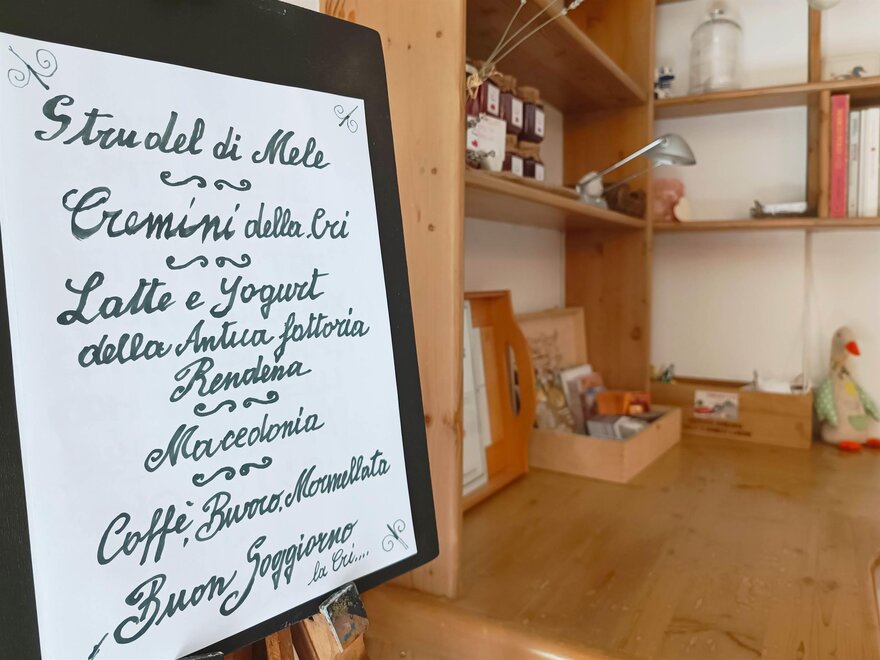 Strudel di Mele
Cremini della Cri
Latte e Yogurt
della Antica fattoria
Rendena
Macedonia
Caffè, Burro, Marmellata
Buon Soggiorno
la Cri....